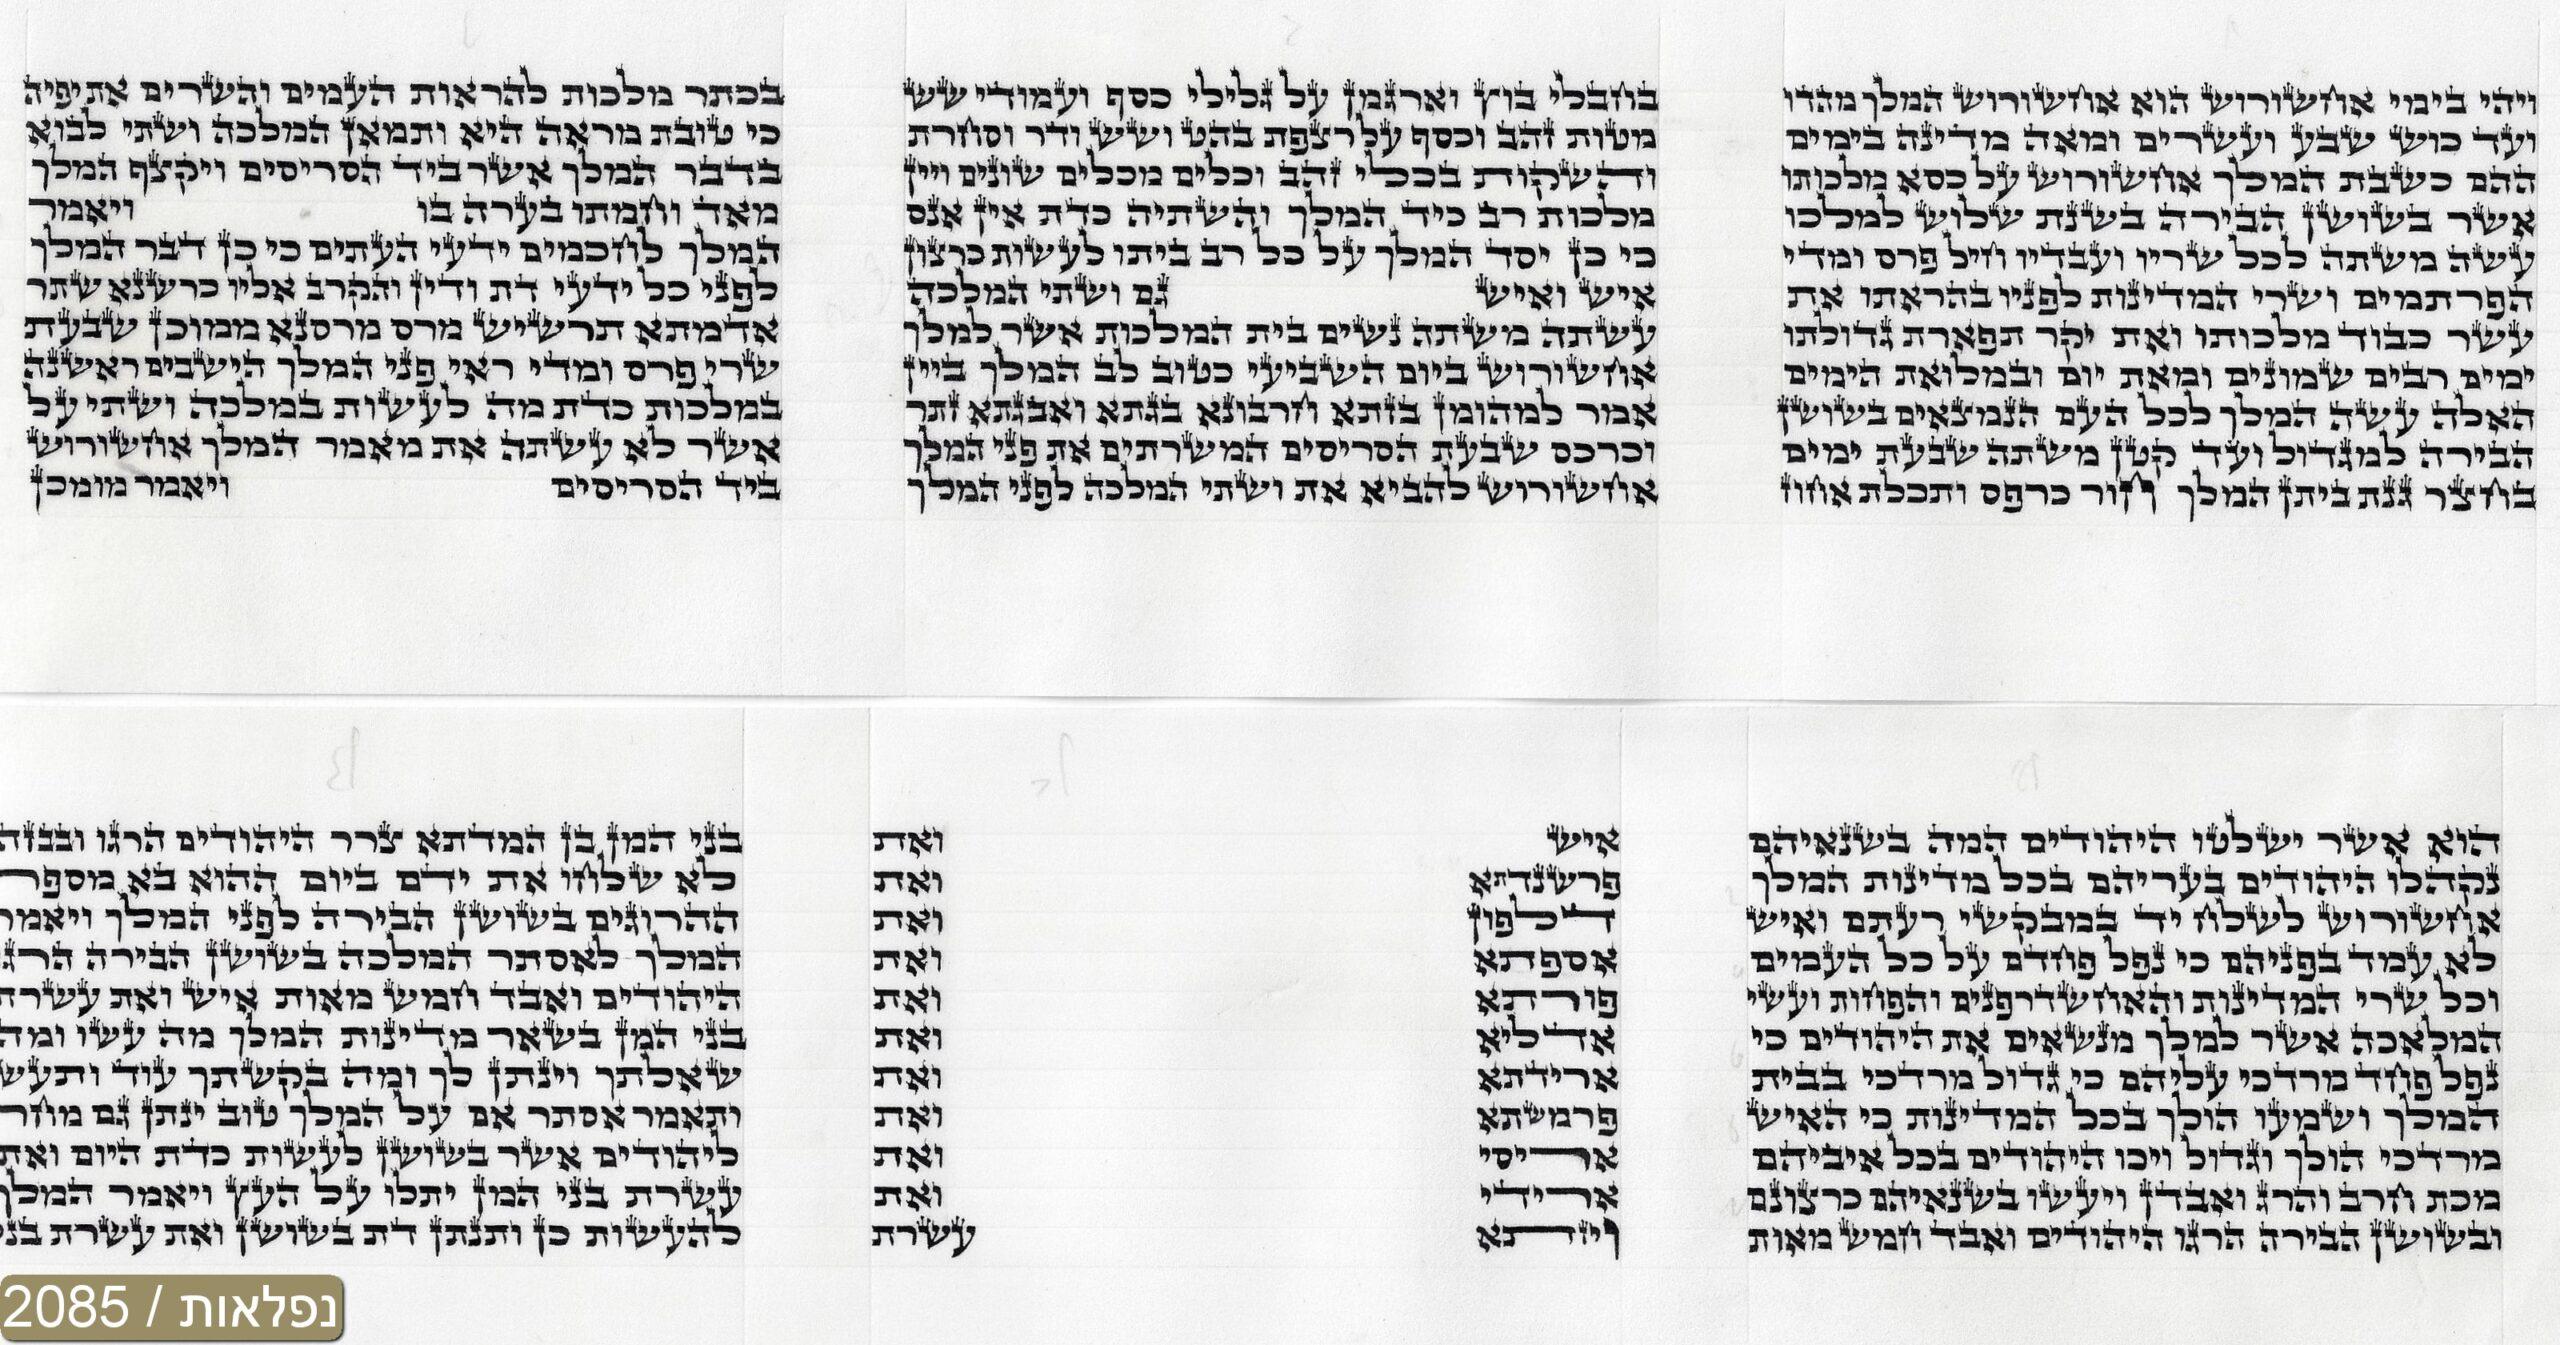 ויהי בימי אחשורוש הוא אחשורוש המלך מהדו
ועד כוש שבע ועשרים ומאה מדינה בימים
ההם כשבת המלך אחשורוש על כסא מלכותו
אשר בשושן הבירה בשנת שלוש למלכו
עשה משתה לכל שריו ועבדיו חיל פרס ומדי
הפרתמים ושרי המדינות לפניו בהראתו את
עשר כבוד מלכותו ואת יקר תפארת גדולתו
ימים רבים שמונים ומאת יום ובמלואת הימים
האלה עשה המלך לכל העם הנמצאים בשושן
הבירה למגדול ועד קטן משתה שבעת ימים
בחצר גנת ביתן המלך חור כרפס ותכלת אחוז
בחבלי בוץ וארגמן על גלילי כסף ועמודי שש
מטות זהב וכסף על רצפת בהט ושש ודר וסחרת
והשקות בכלי זהב וכלים מכלים שונים ויין
מלכות רב כיד המלך והשתיה כדת אין אנס
כי כן יסד המלך על כל רב ביתו לעשות כרצון
איש ואיש גם ושתי המלכה
עשתה משתה נשים בית המלכות אשר למלך
אחשורוש ביום השביעי כטוב לב המלך ביין
אמר למהומן בזתא חרבונא בגתא ואבגתא זתר
וכרכס שבעת הסריסים המשרתים את פני המלך
אחשורוש להביא את ושתי המלכה לפני המלך
בכתר מלכות להראות העמים והשרים את יפיה
כי טובת מראה היא ותמאן המלכה ושתי לבוא
בדבר המלך אשר ביד הסריסים ויקצף המלך
מאד וחמתו בערה בו ויאמר
המלך לחכמים ידעי העתים כי כן דבר המלך
לפני כל ידעי דת ודין והקרב אליו כרשנא שתר
אדמתא תרשיש מרס מרסנא ממוכן שבעת
שרי פרס ומדי ראי פני המלך הישבים ראשנה
במלכות כדת מה לעשות במלכה ושתי על
אשר לא עשתה את מאמר המלך אחשורוש
ביד הסריסים ויאמר מומכן
הוא אשר ישלטו היהודים המה בשנאיהם
נקהלו היהודים בעריהם בכל מדינות המלך
אחשורוש לשלח יד במבקשי רעתם ואיש
לא עמד בפניהם כי נפל פחדם על כל העמים
וכל שרי המדינות והאחשדרפנים והפחות ועשי
המלאכה אשר למלך מנשאים את היהודים כי
נפל פחד מרדכי עליהם כי גדול מרדכי בבית
המלך ושמעו הולך בכל המדינות כי האיש
מרדכי הולך וגדול ויכו היהודים בכל איביהם
מכת חרב והרג ואבדן ויעשו בשנאיהם כרצונם
ובשושן הבירה הרגו היהודים ואבד חמש מאות
איש ואת
פרשנדתא ואת
דלפון ואת
אספתא ואת
פורתא ואת
אדליא ואת
ארידתא ואת
פרמשתא ואת
אריסי ואת
ארידי ואת
ויזתא עשרת
בני המן בן המדתא צרר היהודים הרגו ובבזה
לא שלחו את ידם ביום ההוא בא מספר
ההרוגים בשושן הבירה לפני המלך ויאמר
המלך לאסתר המלכה בשושן הבירה הרג
היהודים ואבד חמש מאות איש ואת עשרת
בני המן בשאר מדינות המלך מה עשו ומה
שאלתך וינתן לך ומה בקשתך עוד ותעש
ותאמר אסתר אם על המלך טוב ינתן גם מחר
ליהודים אשר בשושן לעשות כדת היום ואת
עשרת בני המן יתלו על העץ ויאמר המלך
להעשות כן ותנתן דת בשושן ואת עשרת בני
נפלאות / 2085